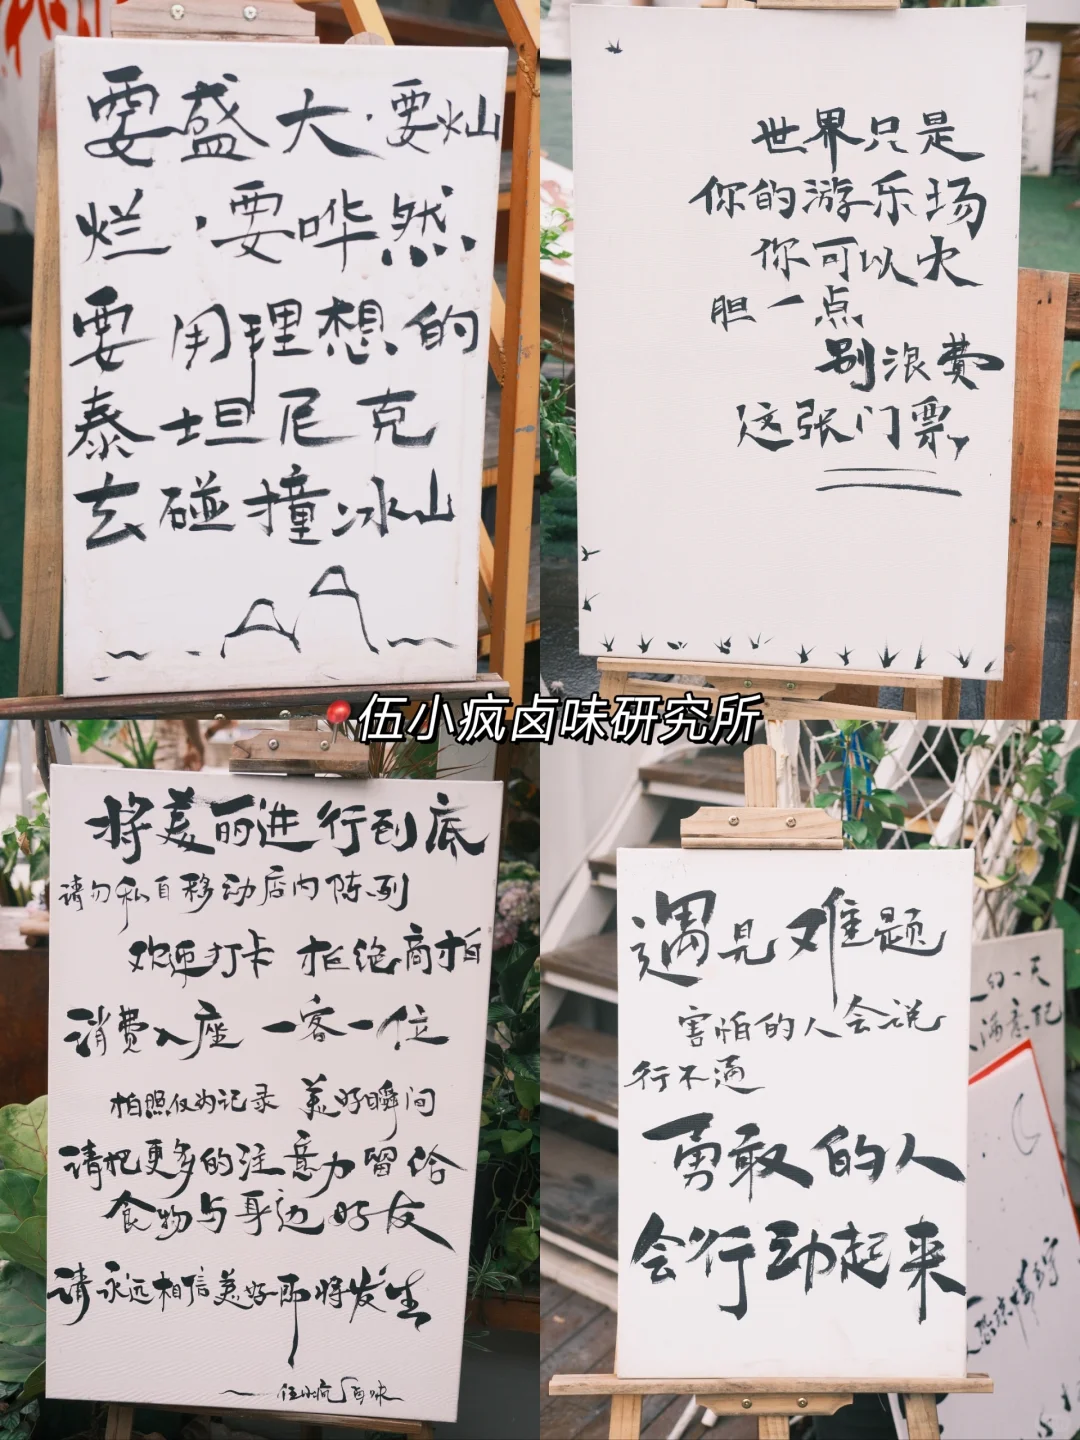 要盛大·要灿
烂·要哗然
要用理想的
泰坦尼克
去碰撞冰山
世界只是
你的游乐场
你可以大
胆一点
别浪费
这张门票,
伍小疯卤味研究所
将美丽进行到底
请勿私自移动店内陈列
欢迎打卡 拒绝商拍
消费入座 一客一位
拍照仅为记录 美好瞬间
请把更多的注意力留给
食物与身边好友
请永远相信美好即将发生
——伍小疯卤味
遇见难题
害怕的人会说
行不通
勇敢的人
会行动起来
一天
满意